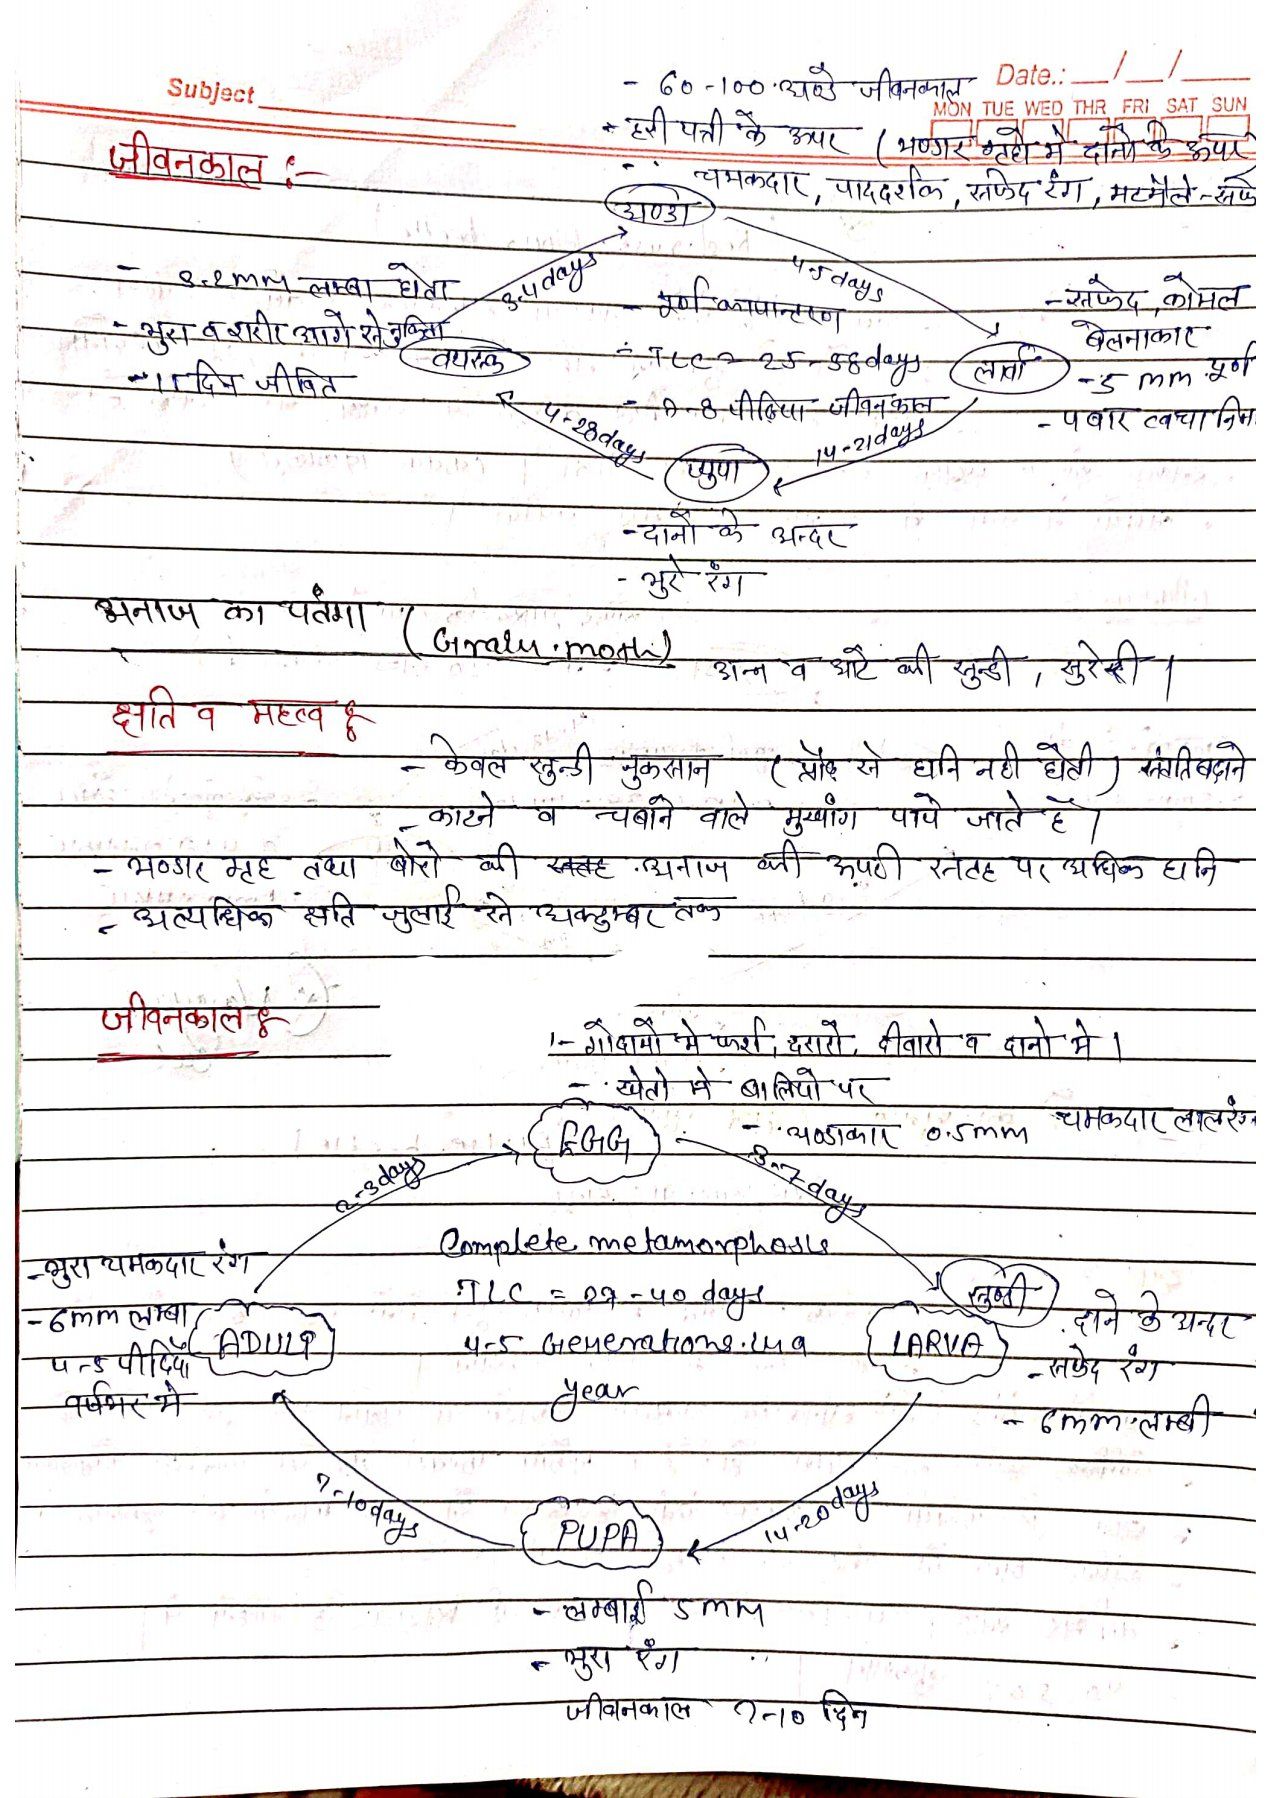 Subject
Date.: __/__/__
MON TUE WED THR FRI SAT SUN
- 60-100 अण्डे जीवनकाल
- हरी पत्ती के ऊपर (भण्डार गृहो मे दानो के ऊपर
- चमकदार, पारदर्शक, सफेद रंग, मटमैले-सफे
जीवनकाल :-
अण्डा
3-4 days
4-5 days
लम्बा होता
- भुरा व शरीर आगे से नुकिला
वयस्क
दिन जीवित
- पूर्ण कायान्तरण
- TLC = 25-58 days
- पीढिया जीवनकाल
- सफेद, कोमल
बेलनाकार
लार्वा
- 5 mm पूर्ण
बार त्वचा
4-28 days
14-21 days
प्युपा
- दानो के अन्दर
- भुरे रंग
अनाज का पतंगा (Grain moth)
अन्न व आटे की सुन्डी, सुरेरी।
क्षति व महत्व :
- केवल सुन्डी नुकसान (प्रौढ से हानि नही होती) संगति बढाने
- काटने व चबाने वाले मुखांग पाये जाते है।
- भण्डार गृह तथा बोरो की सतह अनाज की ऊपरी सतह पर अधिक हानि
- अत्यधिक क्षति जुलाई से अक्टुम्बर तक
जीवनकाल :
- गोदामो मे फर्श, दरारो, दीवारो व दानो मे।
- खेतो मे बालियो पर
- अण्डाकार 0.5mm चमकदार लाल रंग
EGG
2-3 days
3-7 days
Complete metamorphosis
- भुरा चमकदार रंग
TLC = 40 days
सुन्डी
- 6mm लम्बा
ADULT
4-5 Generations in a
LARVA
दाने के अन्दर
4-5 पीढियाँ
year
- सफेद रंग
वर्षभर मे
- 6mm लम्बी
7-10 days
14-20 days
PUPA
- लम्बाई 5 mm
- भुरा रंग
जीवनकाल 7-10 दिन